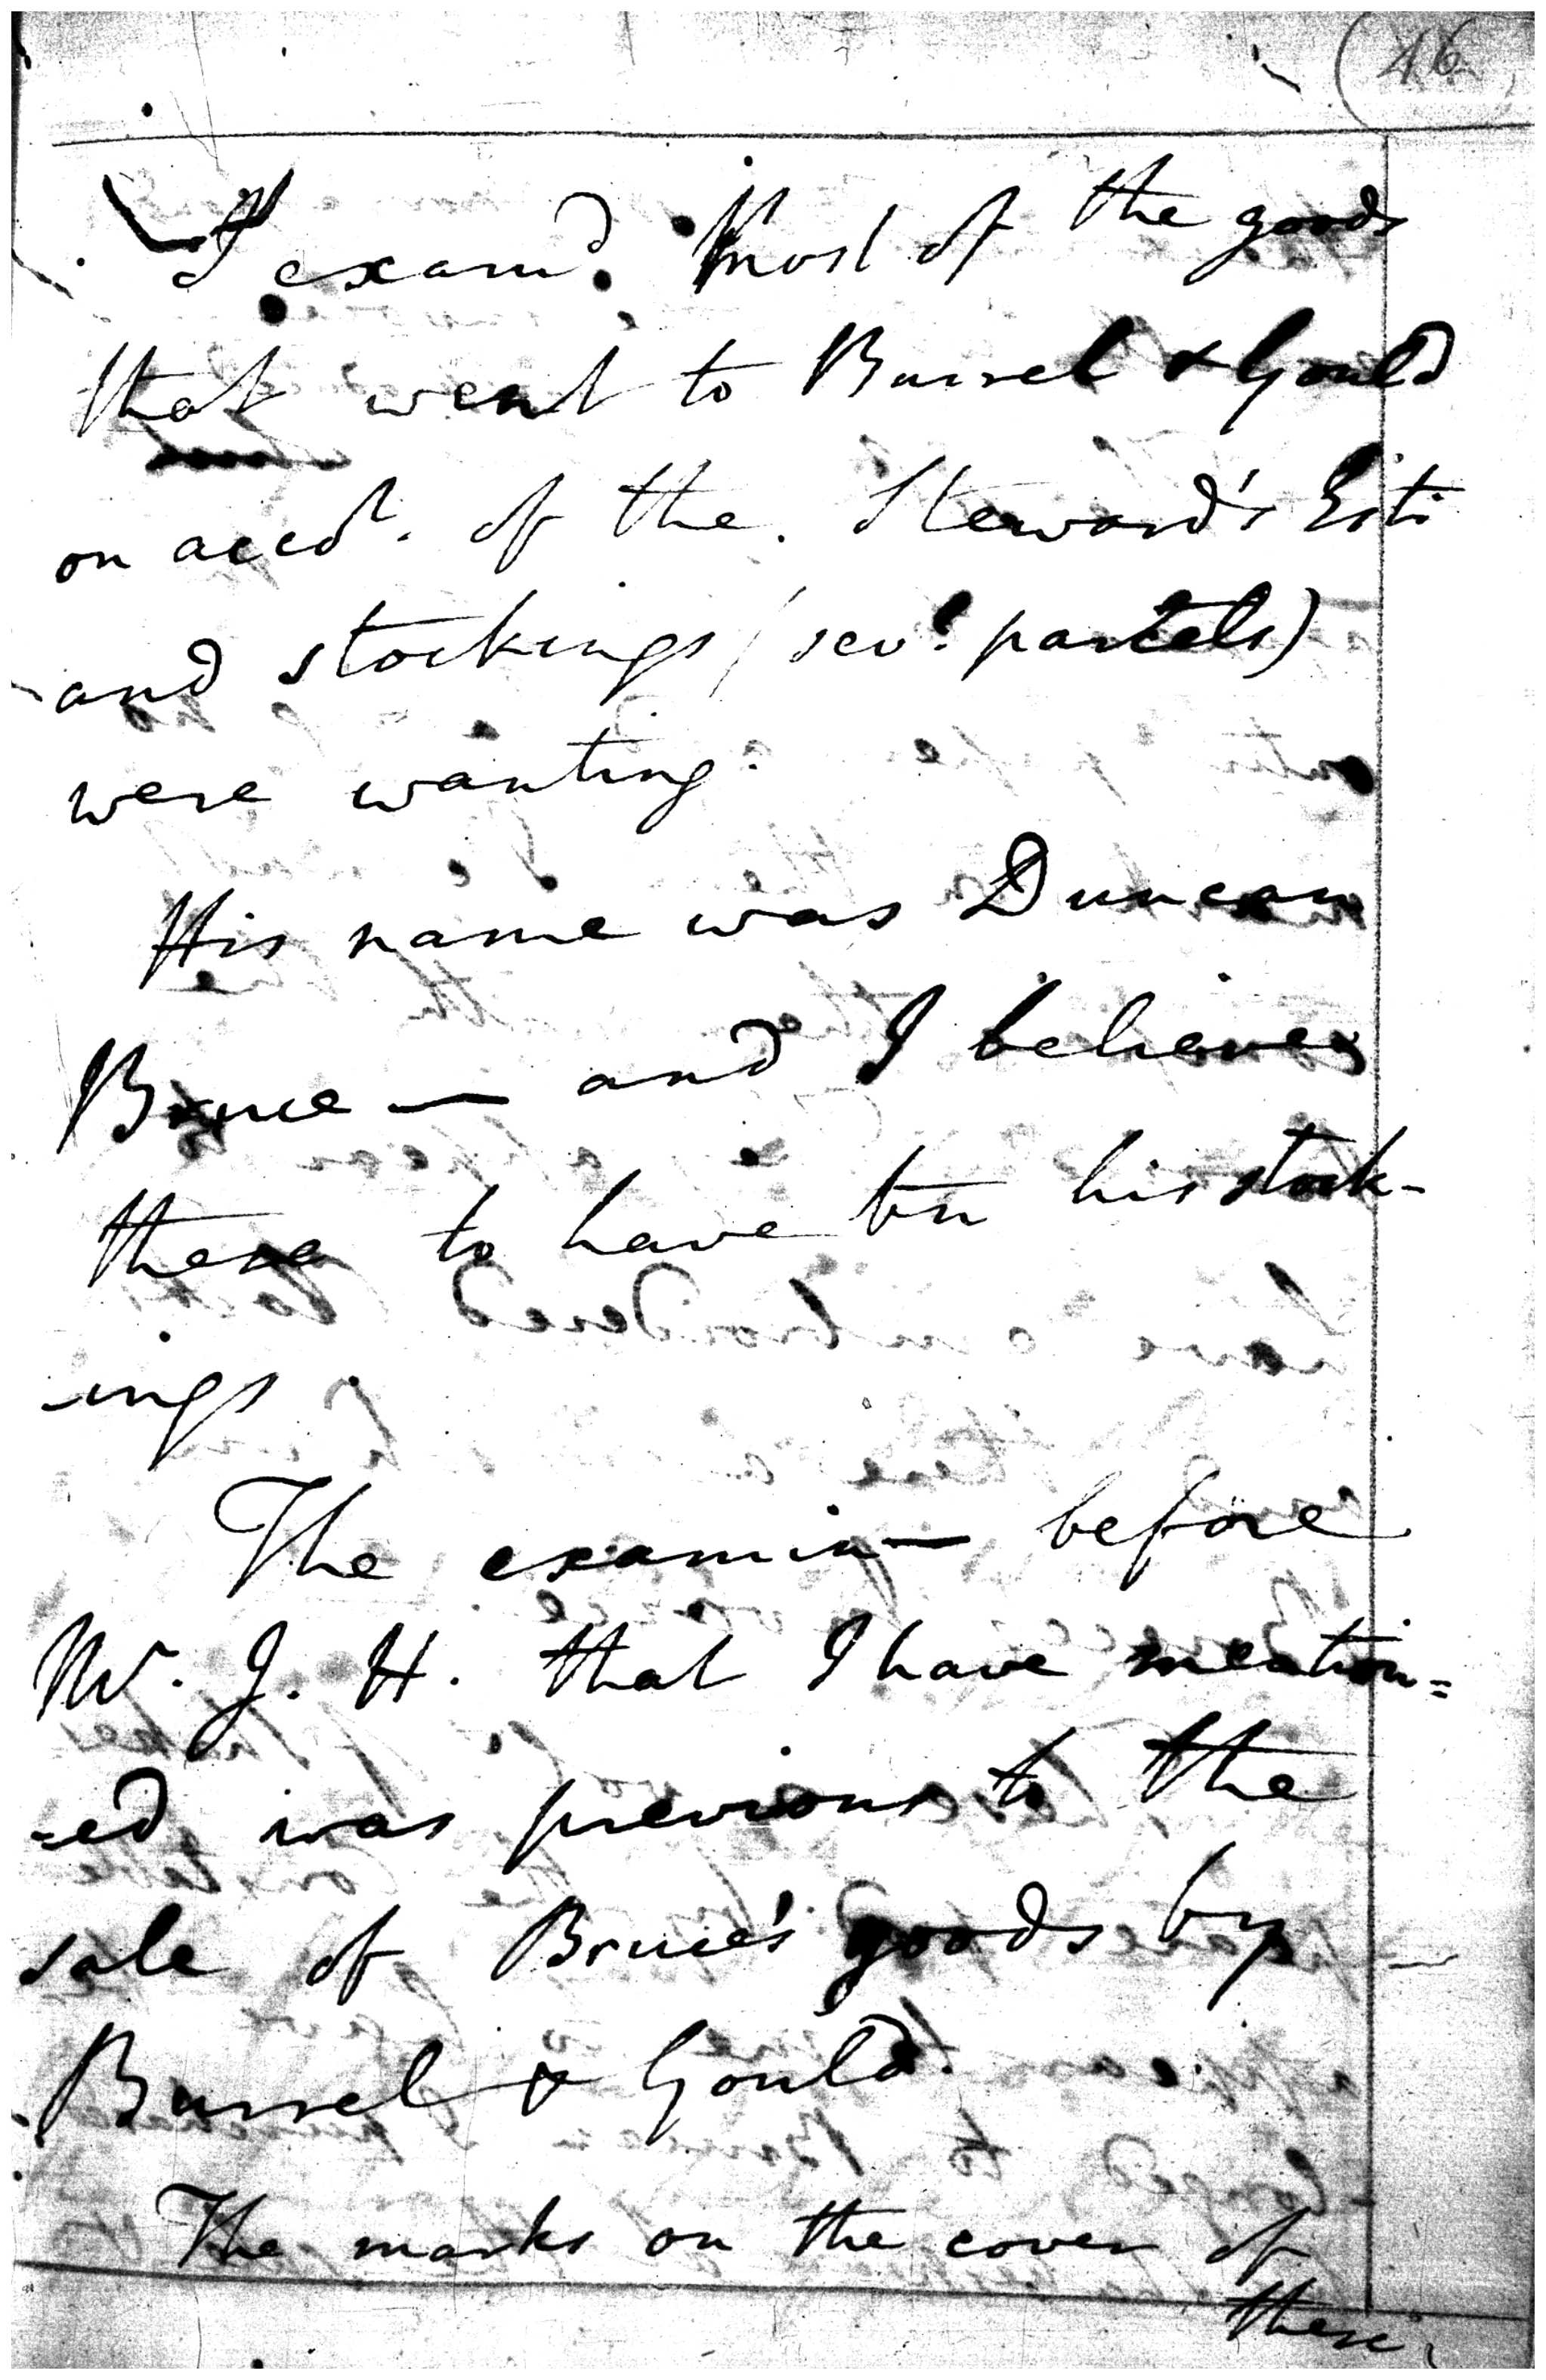 46
I examd. most of the goods
that went to Burrel & Gould
on accot. of the Steward's Este
and stockings (sevl. parcels)
were wanting.
His name was Duncan
Bruce — and I believe
these to have bn his stock-
ings.
The examin— before
Mr. J. H. that I have mention=
=ed was previous to the
sale of Bruce's goods by
Burrel & Gould.
The marks on the cover of
these